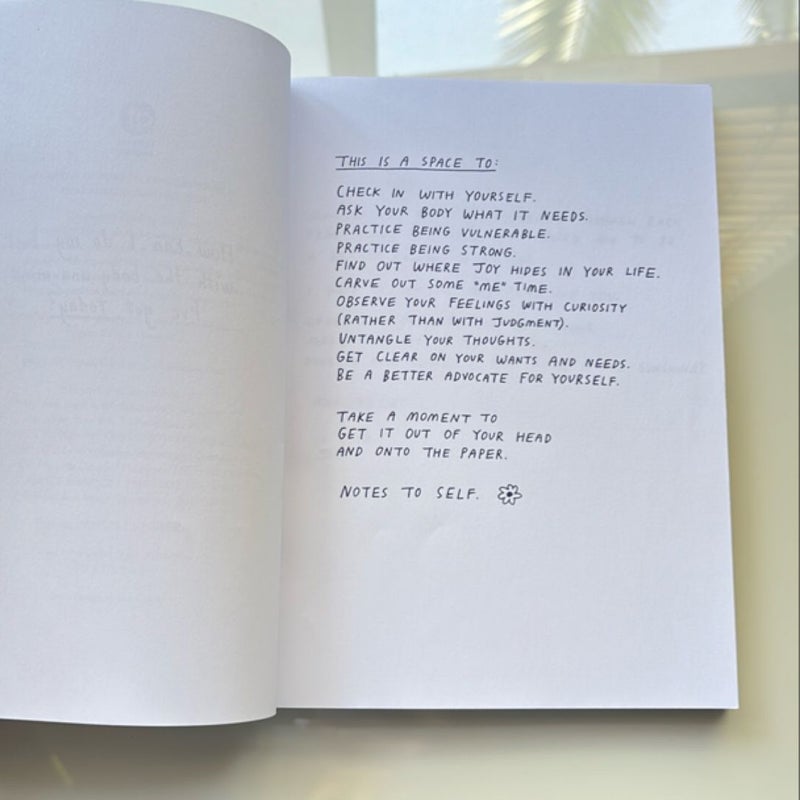 THIS IS A SPACE TO:
CHECK IN WITH YOURSELF.
ASK YOUR BODY WHAT IT NEEDS.
PRACTICE BEING VULNERABLE.
PRACTICE BEING STRONG.
FIND OUT WHERE JOY HIDES IN YOUR LIFE.
CARVE OUT SOME "ME" TIME.
OBSERVE YOUR FEELINGS WITH CURIOSITY
(RATHER THAN WITH JUDGMENT).
UNTANGLE YOUR THOUGHTS.
GET CLEAR ON YOUR WANTS AND NEEDS.
BE A BETTER ADVOCATE FOR YOURSELF.
TAKE A MOMENT TO
GET IT OUT OF YOUR HEAD
AND ONTO THE PAPER.
NOTES TO SELF.